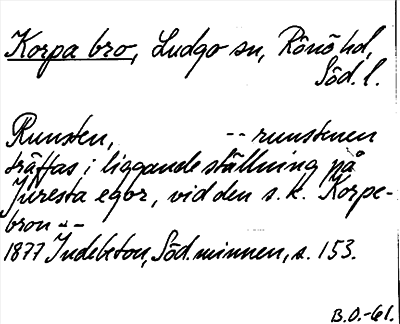 Korpa bro, Ludgo sn, Rönö hd,
Söd. l.
Runsten, -- runstenen
träffas i liggande ställning på
Juresta egor, vid den s. k. Korpe-
bron --
1877 Indebetou, Söd. minnen, s. 153.
B.O.-61.